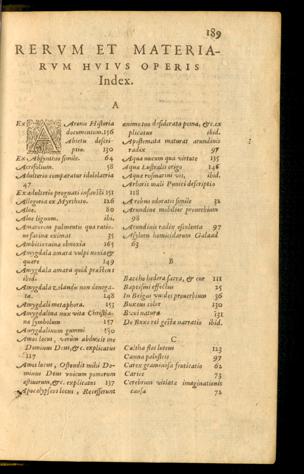 189
RERVM ET MATERIA-
RVM HVIVS OPERIS
Index.
A
Ex Aronis Historia
documentum. 156
Abietis descri-
ptio. 130
Ex Absynthio simile. 64
Acrosolium. 58
Adulterio comparatur idololatria
47
Ex adulterio prognati infames 151
Allegoria ex Myrtheto. 126
Aloe. 80
Aloe lignum. ibi.
Amatorem pulmentis qua ratio-
ne satiaue eximat 35
Ambitio ruina obnoxia 165
Amygdala amara vulpi nexia &
quare 149
Amygdala amara quid præstent
ibid.
Amygdala Zelandu non denega-
ta. 148
Amygdali metaphora. 153
Amygdalina nux vita Christia-
na symbolum 157
Amygdalinum gummi 150
Amos locus, verum abduxit me
Dominus Deus, & c. explicatus
127
Amos locus, Ostendit mihi Do-
minus Deus vncinum pomorum
æstiuorum, &c. explicatus 137
Apocalypseos locus, Recesserunt
animo tuo desiderata poma, &c. ex
plicatus ibid.
Apostemata maturat arundinis
radix 97
Aqua nucum qua virtute 155
Aqua Lustralis origo 146
Aqua rosmarini vis, ibid.
Arboris mali Punici descriptio
118
Arboris odoratis simile 32
Arundine mobilior prouerbium
98
Arundinis radix esculenta 97
Asylum homicidarum Galaad
63
B
Baccho hedera sacra, & cur 111
Baptismi effectus 25
In Beigos viridos prouerbium 36
Buxeus color 130
Buxi natura 131
De Buxo rei gesta narratio ibid.
C
Caltha flos luteus 123
Canna palustris 97
Carex graminosa fruticatio 62
Carice 73
Cerebrum vitiatæ imaginationis
causa 72